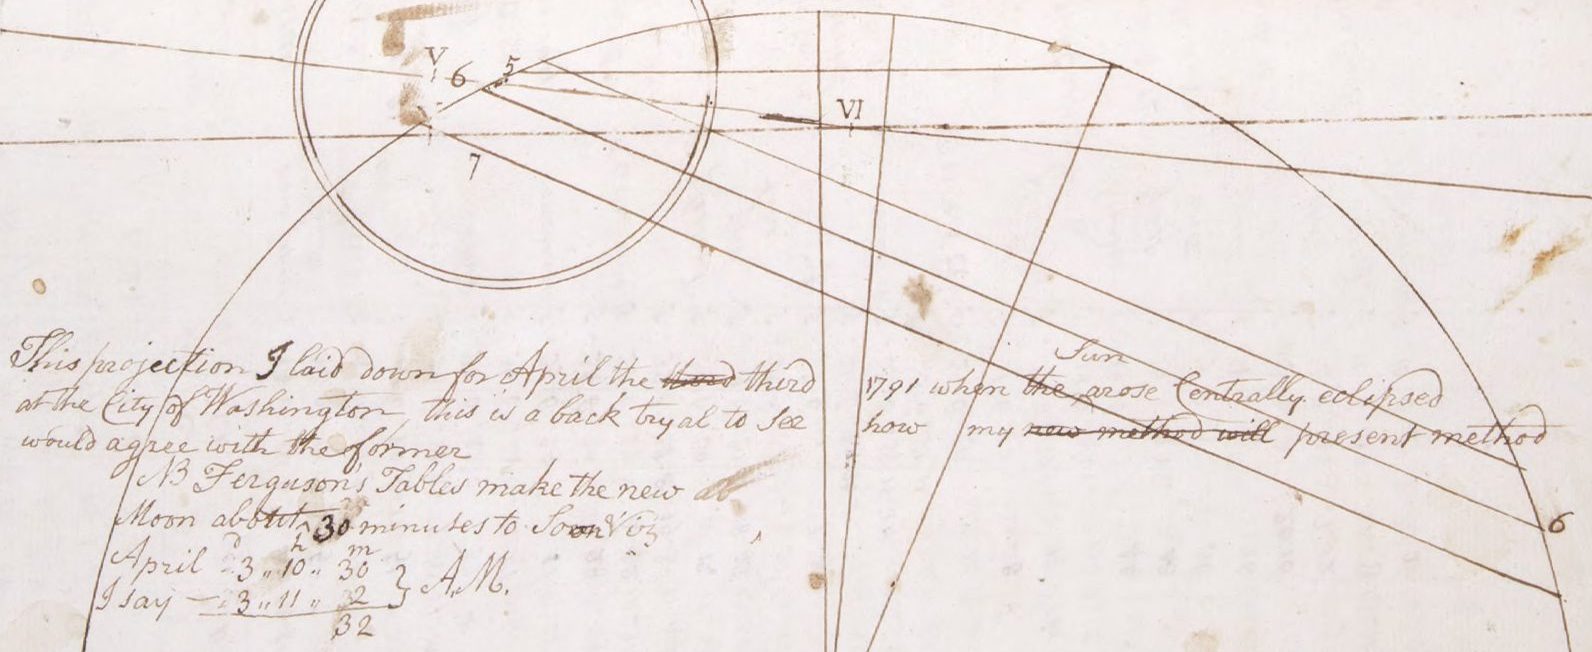 V
6 5
VI
7
This projection I laid down for April the third third 1791 when the Sun arose Centrally eclipsed
at the City of Washington, this is a back tryal to see how my new method will present method
would agree with the former
NB Ferguson's Tables make the new
Moon about 30 minutes to Soon Viz
6
d h m
April 3 " 10 " 30 } A.M.
I say — 3 " 11 " 2
32